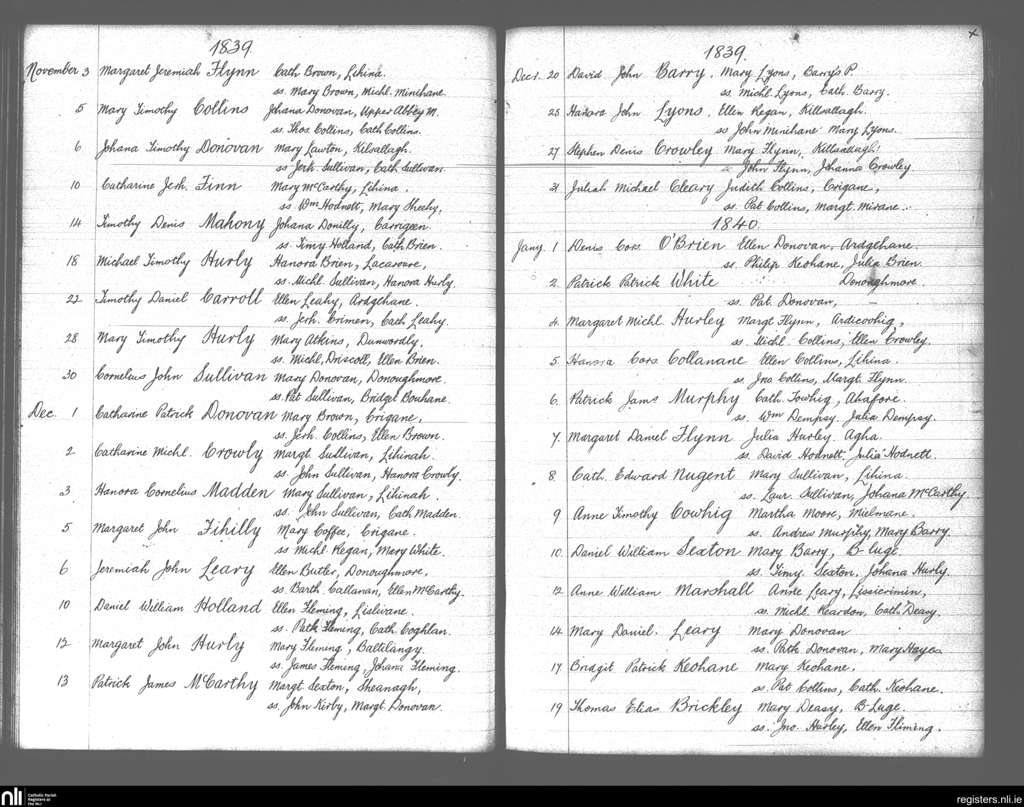 1839.
November 3 Margaret Jeremiah Flynn Cath Brown, Lihina.
ss. Mary Brown, Michl. Minihane.
5 Mary Timothy Collins Johana Donovan, Upper Abbey M.
ss. Thos Collins, Cath Collins.
6 Johana Timothy Donovan Mary Lawton, Kilsallagh.
ss Jerh. Sullivan, Cath Sullivan.
10 Catharine Jerh. Finn Mary McCarthy, Lihina.
ss Wm Hodnett, Mary Sheehy,
14 Timothy Denis Mahony Johana Donilly, Carrigeen
ss. Timy Holland, Cath Brien.
18 Michael Timothy Hurly Hanora Brien, Lacaroure,
ss. Michl Sullivan, Hanora Hurly.
22 Timothy Daniel Carroll Ellen Leahy, Ardgehane.
ss. Jerh. Crimen, Cath Leahy.
28 Mary Timothy Hurly Mary Atkins, Dunwordly.
ss. Michl Driscoll, Ellen Brien.
30 Cornelius John Sullivan Mary Donovan, Donoughmore.
ss. Pat Sullivan, Bridget Bouhane.
Dec. 1 Catharine Patrick Donovan Mary Brown, Crigane,
ss. Jerh. Collins, Ellen Brown.
2 Catharine Michl. Crowly Margt Sullivan, Lihinah.
ss. John Sullivan, Hanora Crowly.
3 Hanora Cornelius Madden Mary Sullivan, Lihinah.
ss. John Sullivan, Cath Madden.
5 Margaret John Fihilly Mary Coffee, Crigane.
ss Michl Regan, Mary White.
6 Jeremiah John Leary Ellen Butler, Donoughmore,
ss Barth Callanan, Ellen McCarthy.
10 Daniel William Holland Ellen Fleming, Lislivane.
ss. Patk Fleming, Cath Coghlan.
12 Margaret John Hurly Mary Fleming, Baltilangy.
ss. James Fleming, Johana Fleming.
13 Patrick James McCarthy Margt Sexton, Sheanagh,
ss. John Kirby, Margt Donovan.
x
1839.
Decr. 20 David John Barry. Mary Lyons, Barry's P.
ss. Michl Lyons, Cath. Barry.
25 Hanora John Lyons. Ellen Regan, Killsallagh.
ss John Minihane Mary Lyons.
27 Stephen Denis Crowley Mary Flynn, Killsallagh.
ss John Flynn, Johanna Crowley.
31 Juliah Michael Cleary Judith Collins, Crigane,
ss. Pat Collins, Margt. Mirane.
1840.
Jany. 1 Denis Cors. O'Brien Ellen Donovan, Ardgehane.
ss. Philip Keohane, Julia Brien.
2. Patrick Patrick White Donoughmore.
ss. Pat. Donovan, —
4. Margaret Michl. Hurley Margt Flynn, Ardicovhig,
ss. Michl. Collins, Ellen Crowley.
5. Hanora Cors. Collanane Ellen Collins, Lihina.
ss. Jno Collins, Margt. Flynn.
6. Patrick Jams Murphy Cath. Towhig, Ahafore.
ss. Wm Dempsy. Julia Dempsy.
7. Margaret Daniel Flynn Julia Hurley. Agha.
ss. David Hodnett, Julia Hodnett.
8. Cath. Edward Nugent Mary Sullivan, Lihina.
ss. Laur. Sullivan, Johana McCarthy.
9 Anne Timothy Cowhig Martha Moore, Mielmane.
ss. Andrew Murphy, Mary Barry.
10. Daniel William Sexton Mary Barry, B-luge.
ss. Timy. Sexton. Johana Hurly.
12 Anne William Marshall Anne Leary, Lissicrimin,
ss. Michl. Reardon, Cath. Deasy.
14. Mary Daniel. Leary Mary Donovan
ss. Patk Donovan, Mary Hayes
17 Bridgit Patrick Keohane Mary Keohane.
ss. Pat Collins, Cath. Keohane.
19 Thomas Elias Brickley Mary Deasy, B-Luge.
ss. Jno. Hurley, Ellen Fliming.
nli
Catholic Parish
Registers at
the NLI
registers.nli.ie